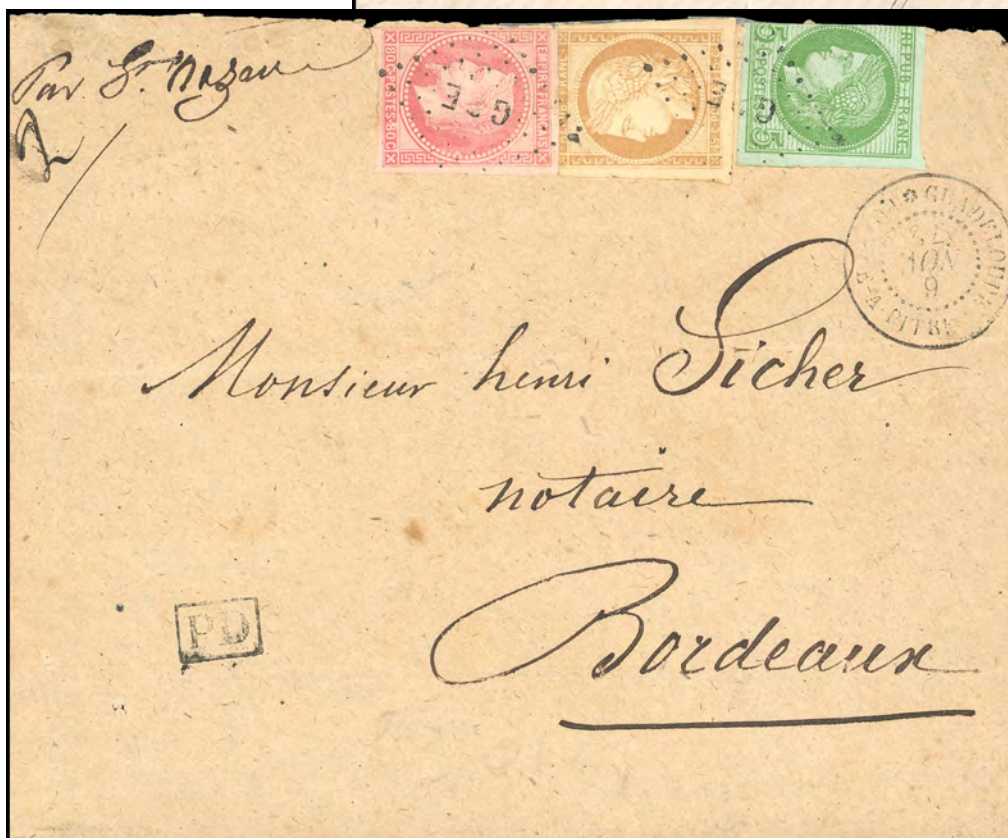 Par St. Nazaire
2
80C POSTES 80C
EMPIRE FRANÇAIS
5 POSTES 5
REPUB FRANC
GPE
GPE
GUADELOUPE
NOV
9
P-A-PITRE
Monsieur henri Sicher
notaire
Bordeaux
PD